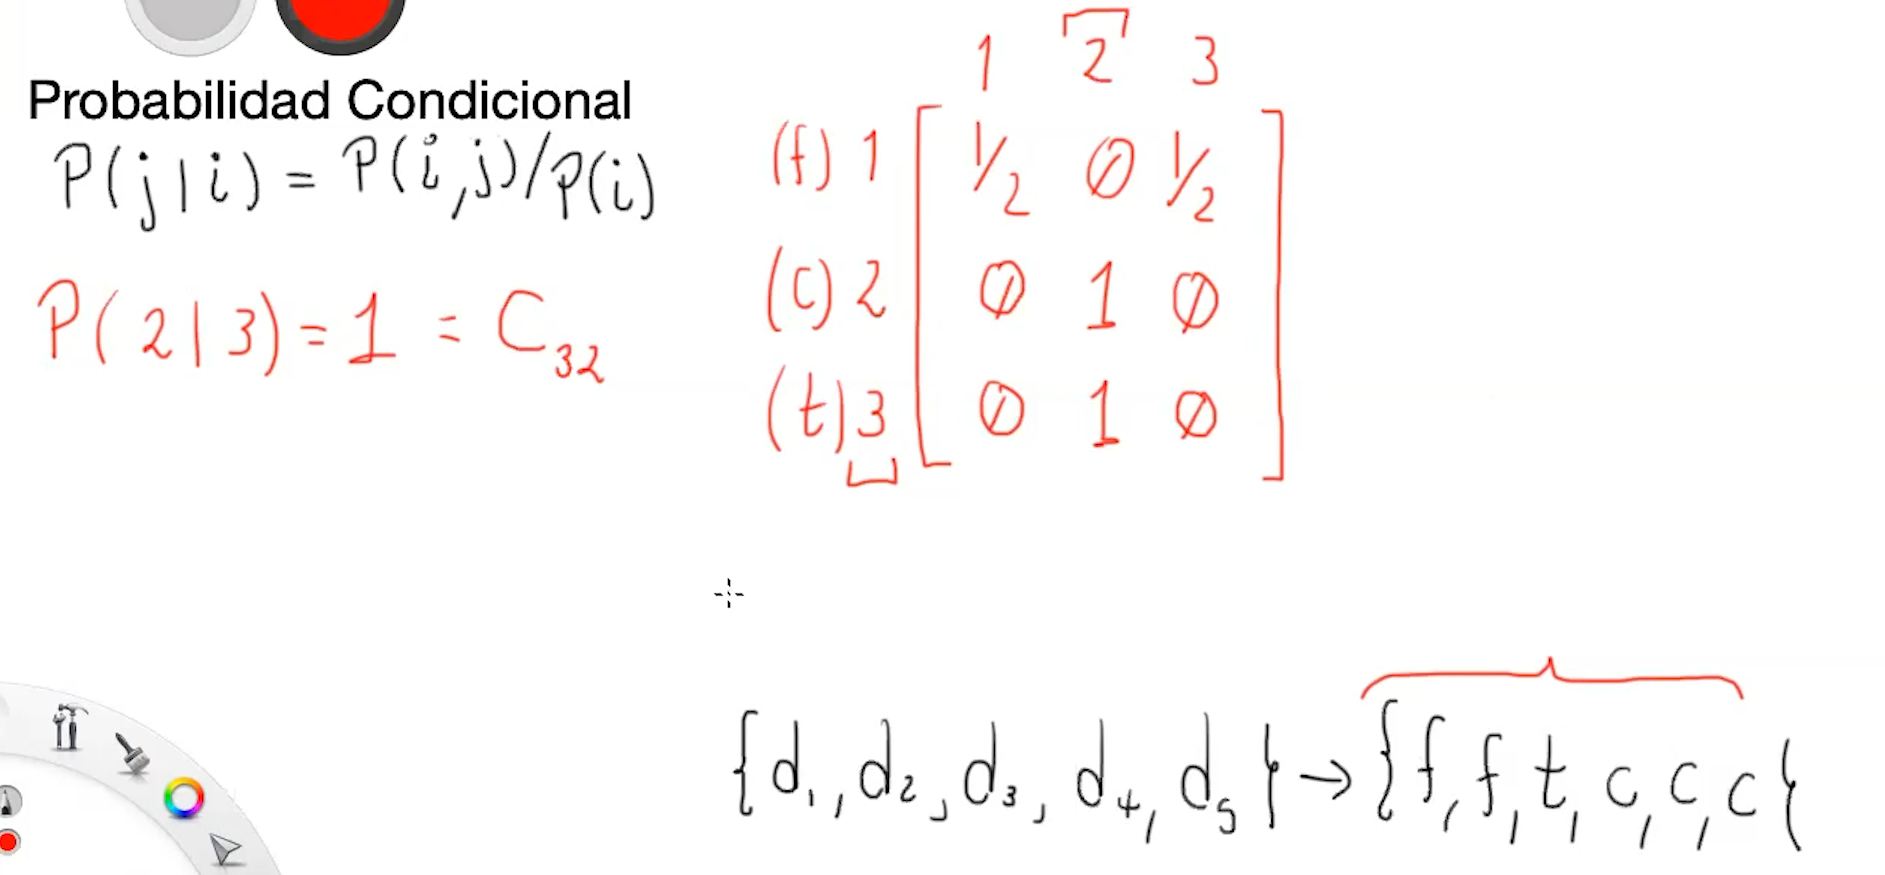 Probabilidad Condicional
P(j|i) = P(i,j)/P(i)
P(2|3) = 1 = C₃₂
1 2 3
(f) 1 [ 1/2 0 1/2 ]
(c) 2 [ 0 1 0 ]
(t) 3 [ 0 1 0 ]
{d₁, d₂, d₃, d₄, d₅} → {f, f, t, c, c, c}